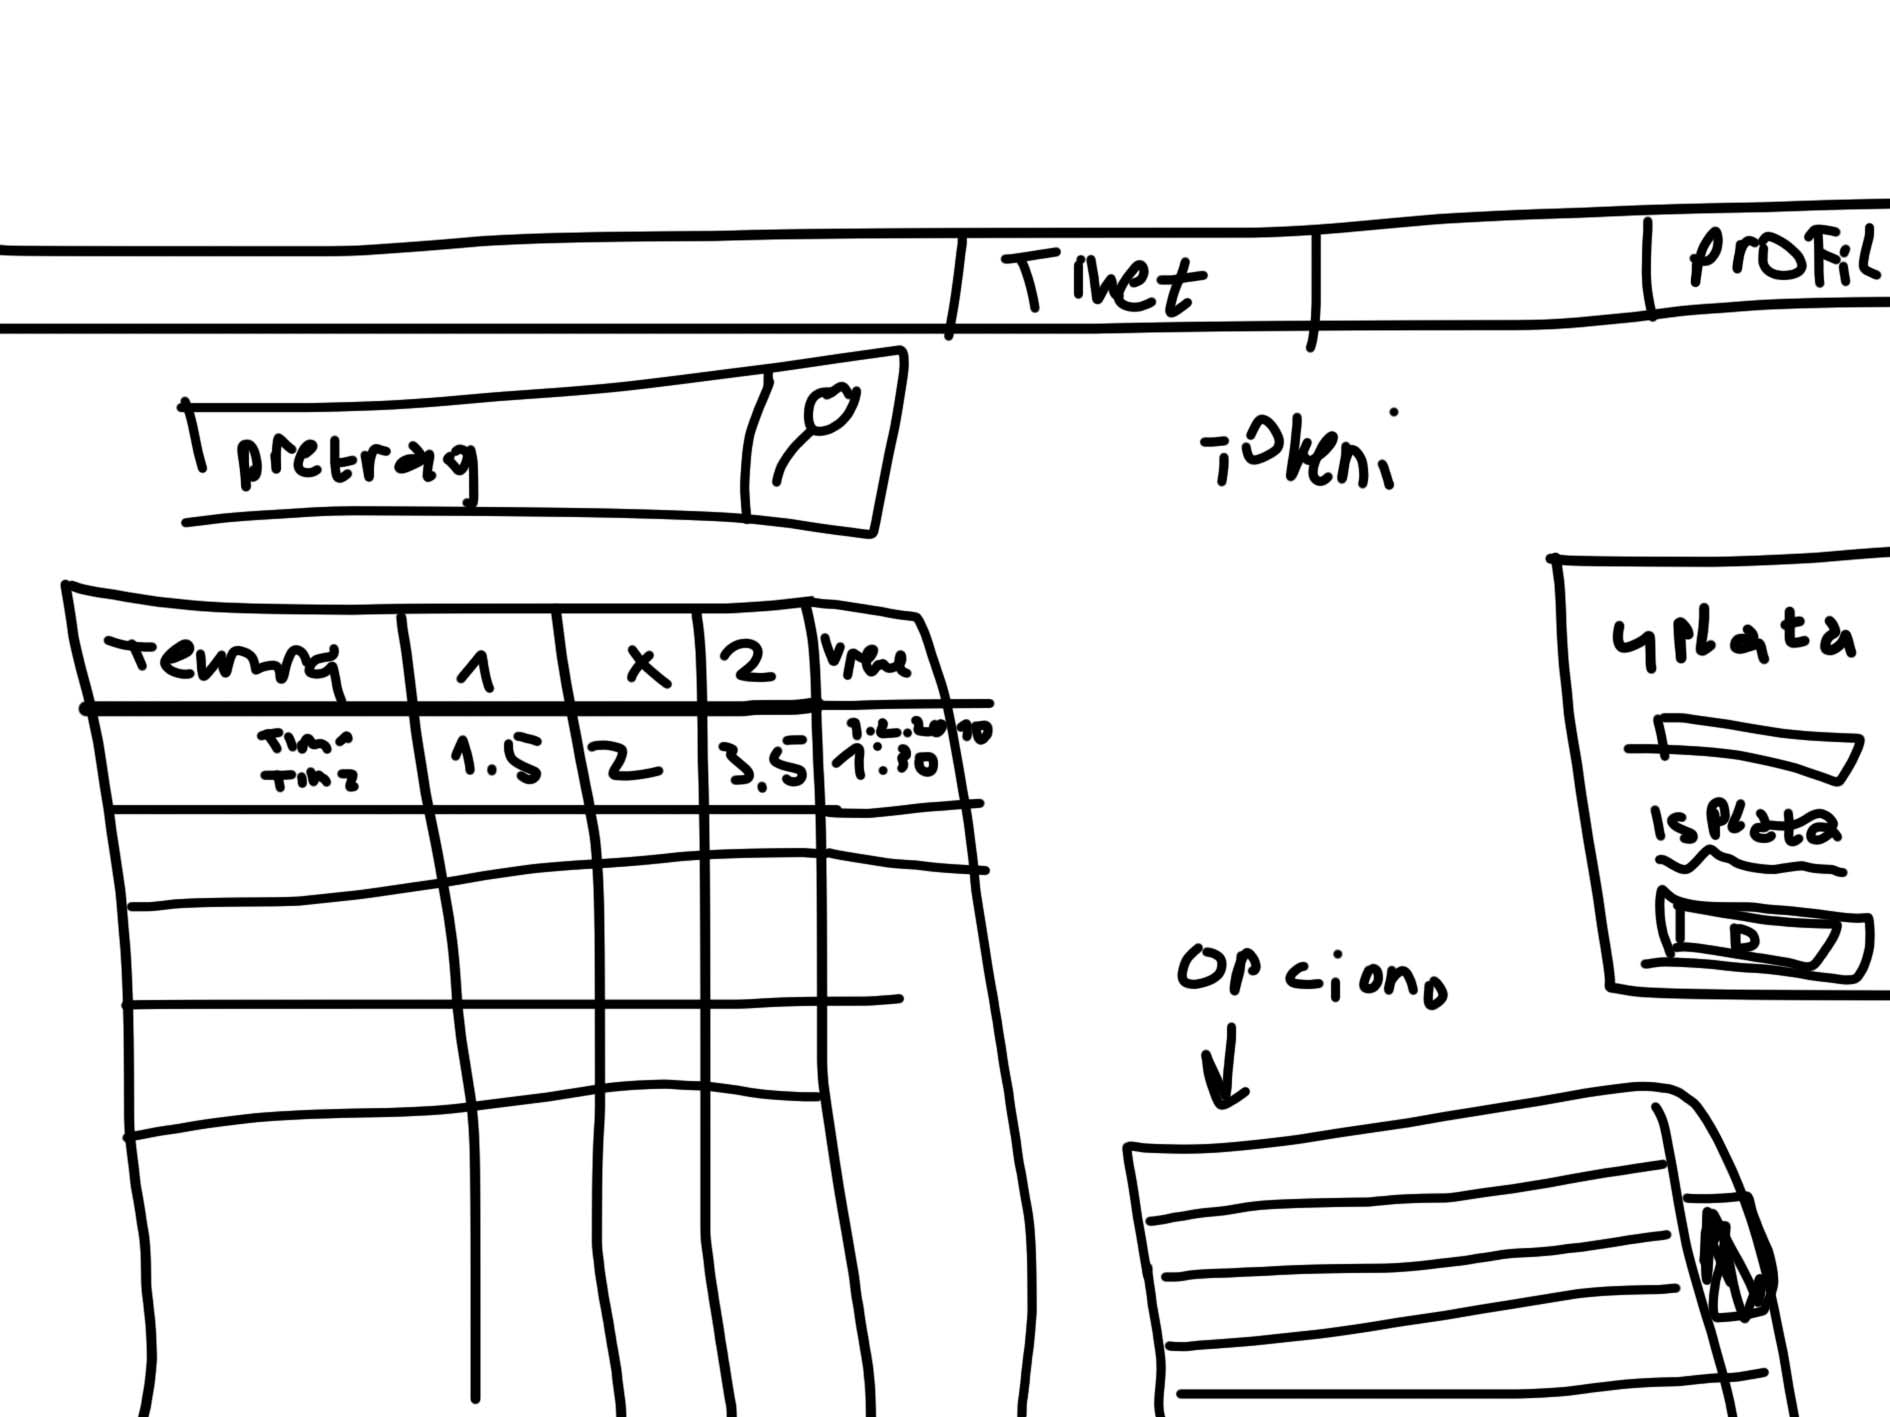 Tiket
Profil
pretrag
Tokeni
1 X 2 Vreme
Tim 1
Tim 2
1.5 2 3.5
1:30
Uplata
Isplata
D
Opciono